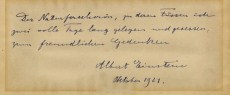 Der Naturforscherin, zu deren Füssen ich
zwei volle Tage lang gelegen und gesessen,
zum freundlichen Gedenken
Albert Einstein
Oktober 1921.